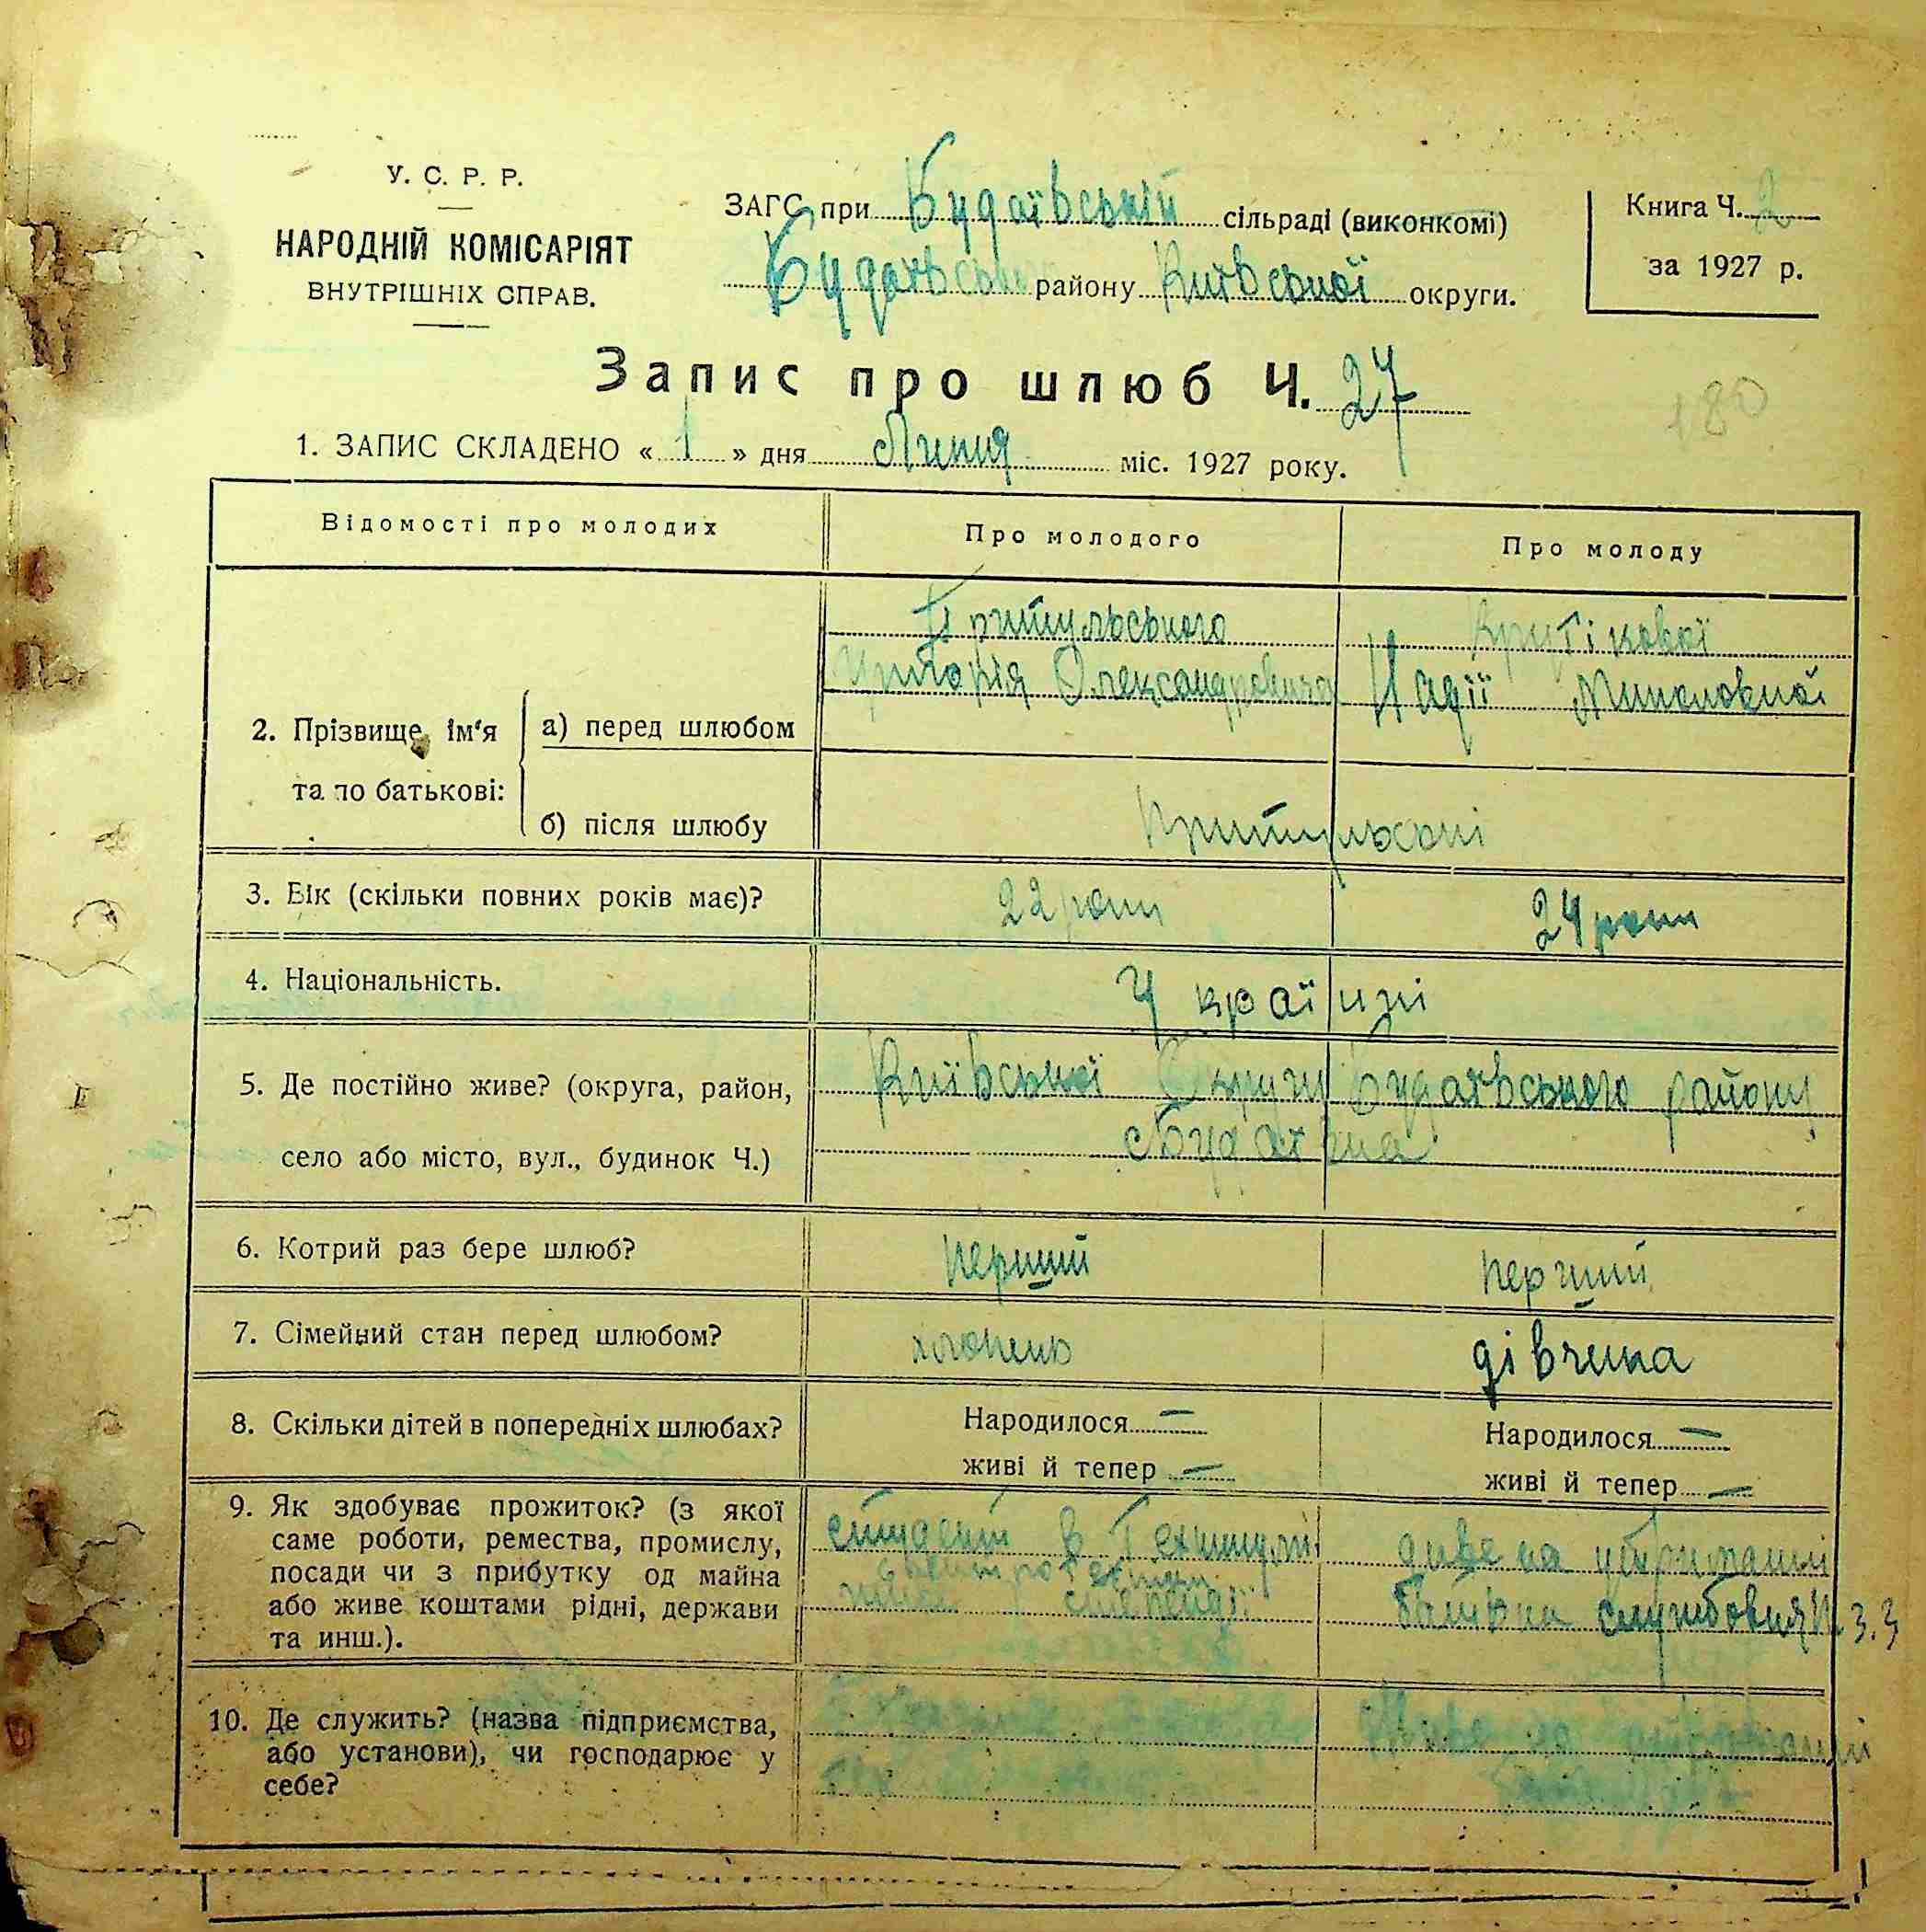 У. С. Р. Р.
НАРОДНІЙ КОМІСАРІЯТ
ВНУТРІШНІХ СПРАВ.
ЗАГС при Будаївській сільраді (виконкомі)
Будаївського району Київської округи.
Книга Ч. 2
за 1927 р.
Запис про шлюб Ч. 27
180
1. ЗАПИС СКЛАДЕНО « 1 » дня Липня міс. 1927 року.
Відомості про молодих
Про молодого
Про молоду
2. Прізвище, ім'я
та по батькові:
а) перед шлюбом
Притульського
Григорія Олександровича
Крутікової
Надії Миколовної
б) після шлюбу
Притульські
3. Вік (скільки повних років має)?
22 роки
24 роки
4. Національність.
Українці
5. Де постійно живе? (округа, район,
село або місто, вул., будинок Ч.)
Київської Округи Будаївського району
с Будаївка
6. Котрий раз бере шлюб?
перший
перший
7. Сімейний стан перед шлюбом?
хлопець
дівчина
8. Скільки дітей в попередніх шлюбах?
Народилося —
живі й тепер —
Народилося —
живі й тепер —
9. Як здобуває прожиток? (з якої
саме роботи, ремества, промислу,
посади чи з прибутку од майна
або живе коштами рідні, держави
та инш.).
студент в Технікумі
стипендії
живе на утриманні
батька службовця П. З. З
10. Де служить? (назва підприємства,
або установи), чи господарює у
себе?
Живе на утриманні